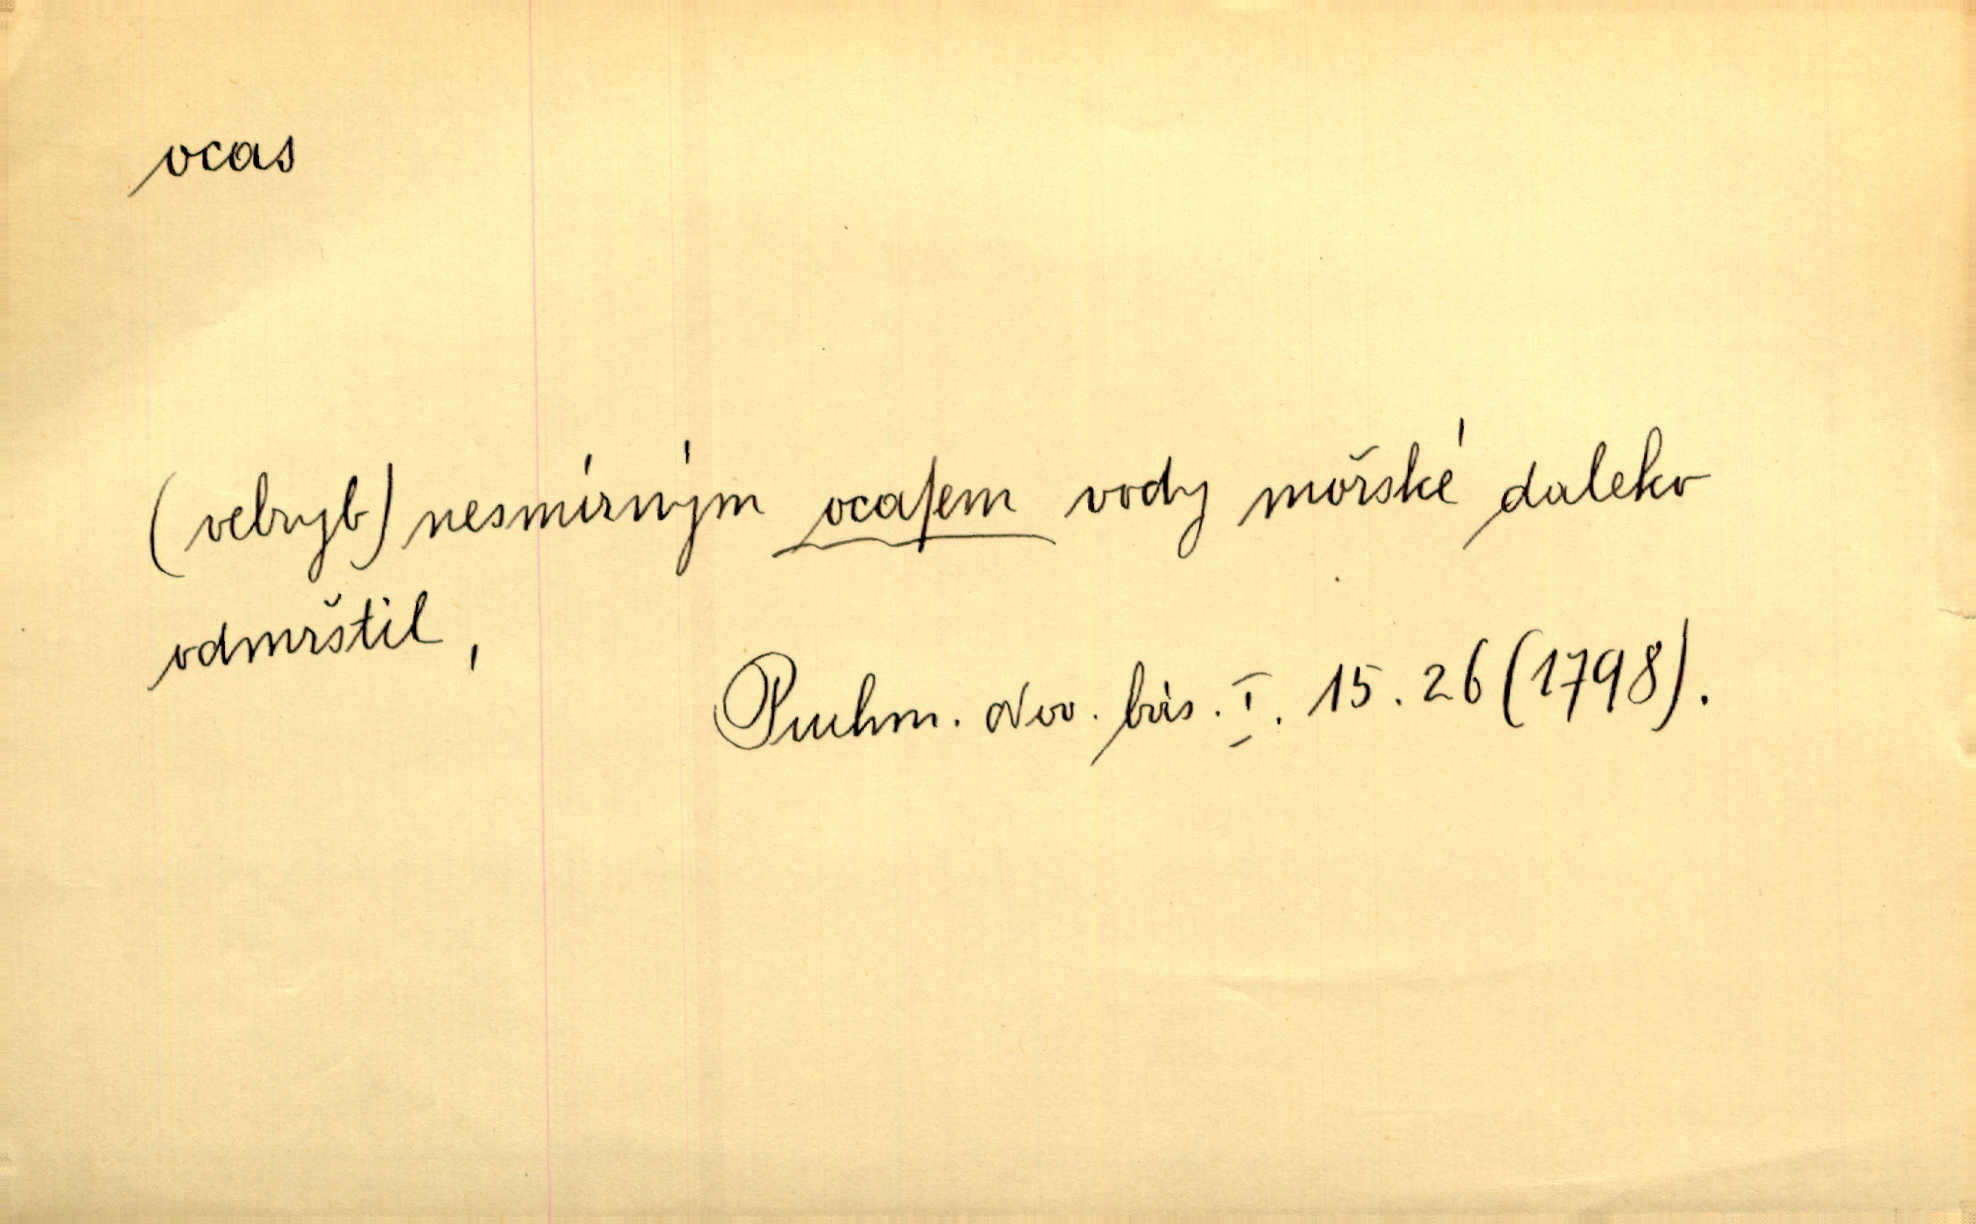 ocas
(velryb) nesmírným ocaſem vody mořské daleko
odmrštil,
Puchm. Nov. bás. I. 15. 26 (1798).